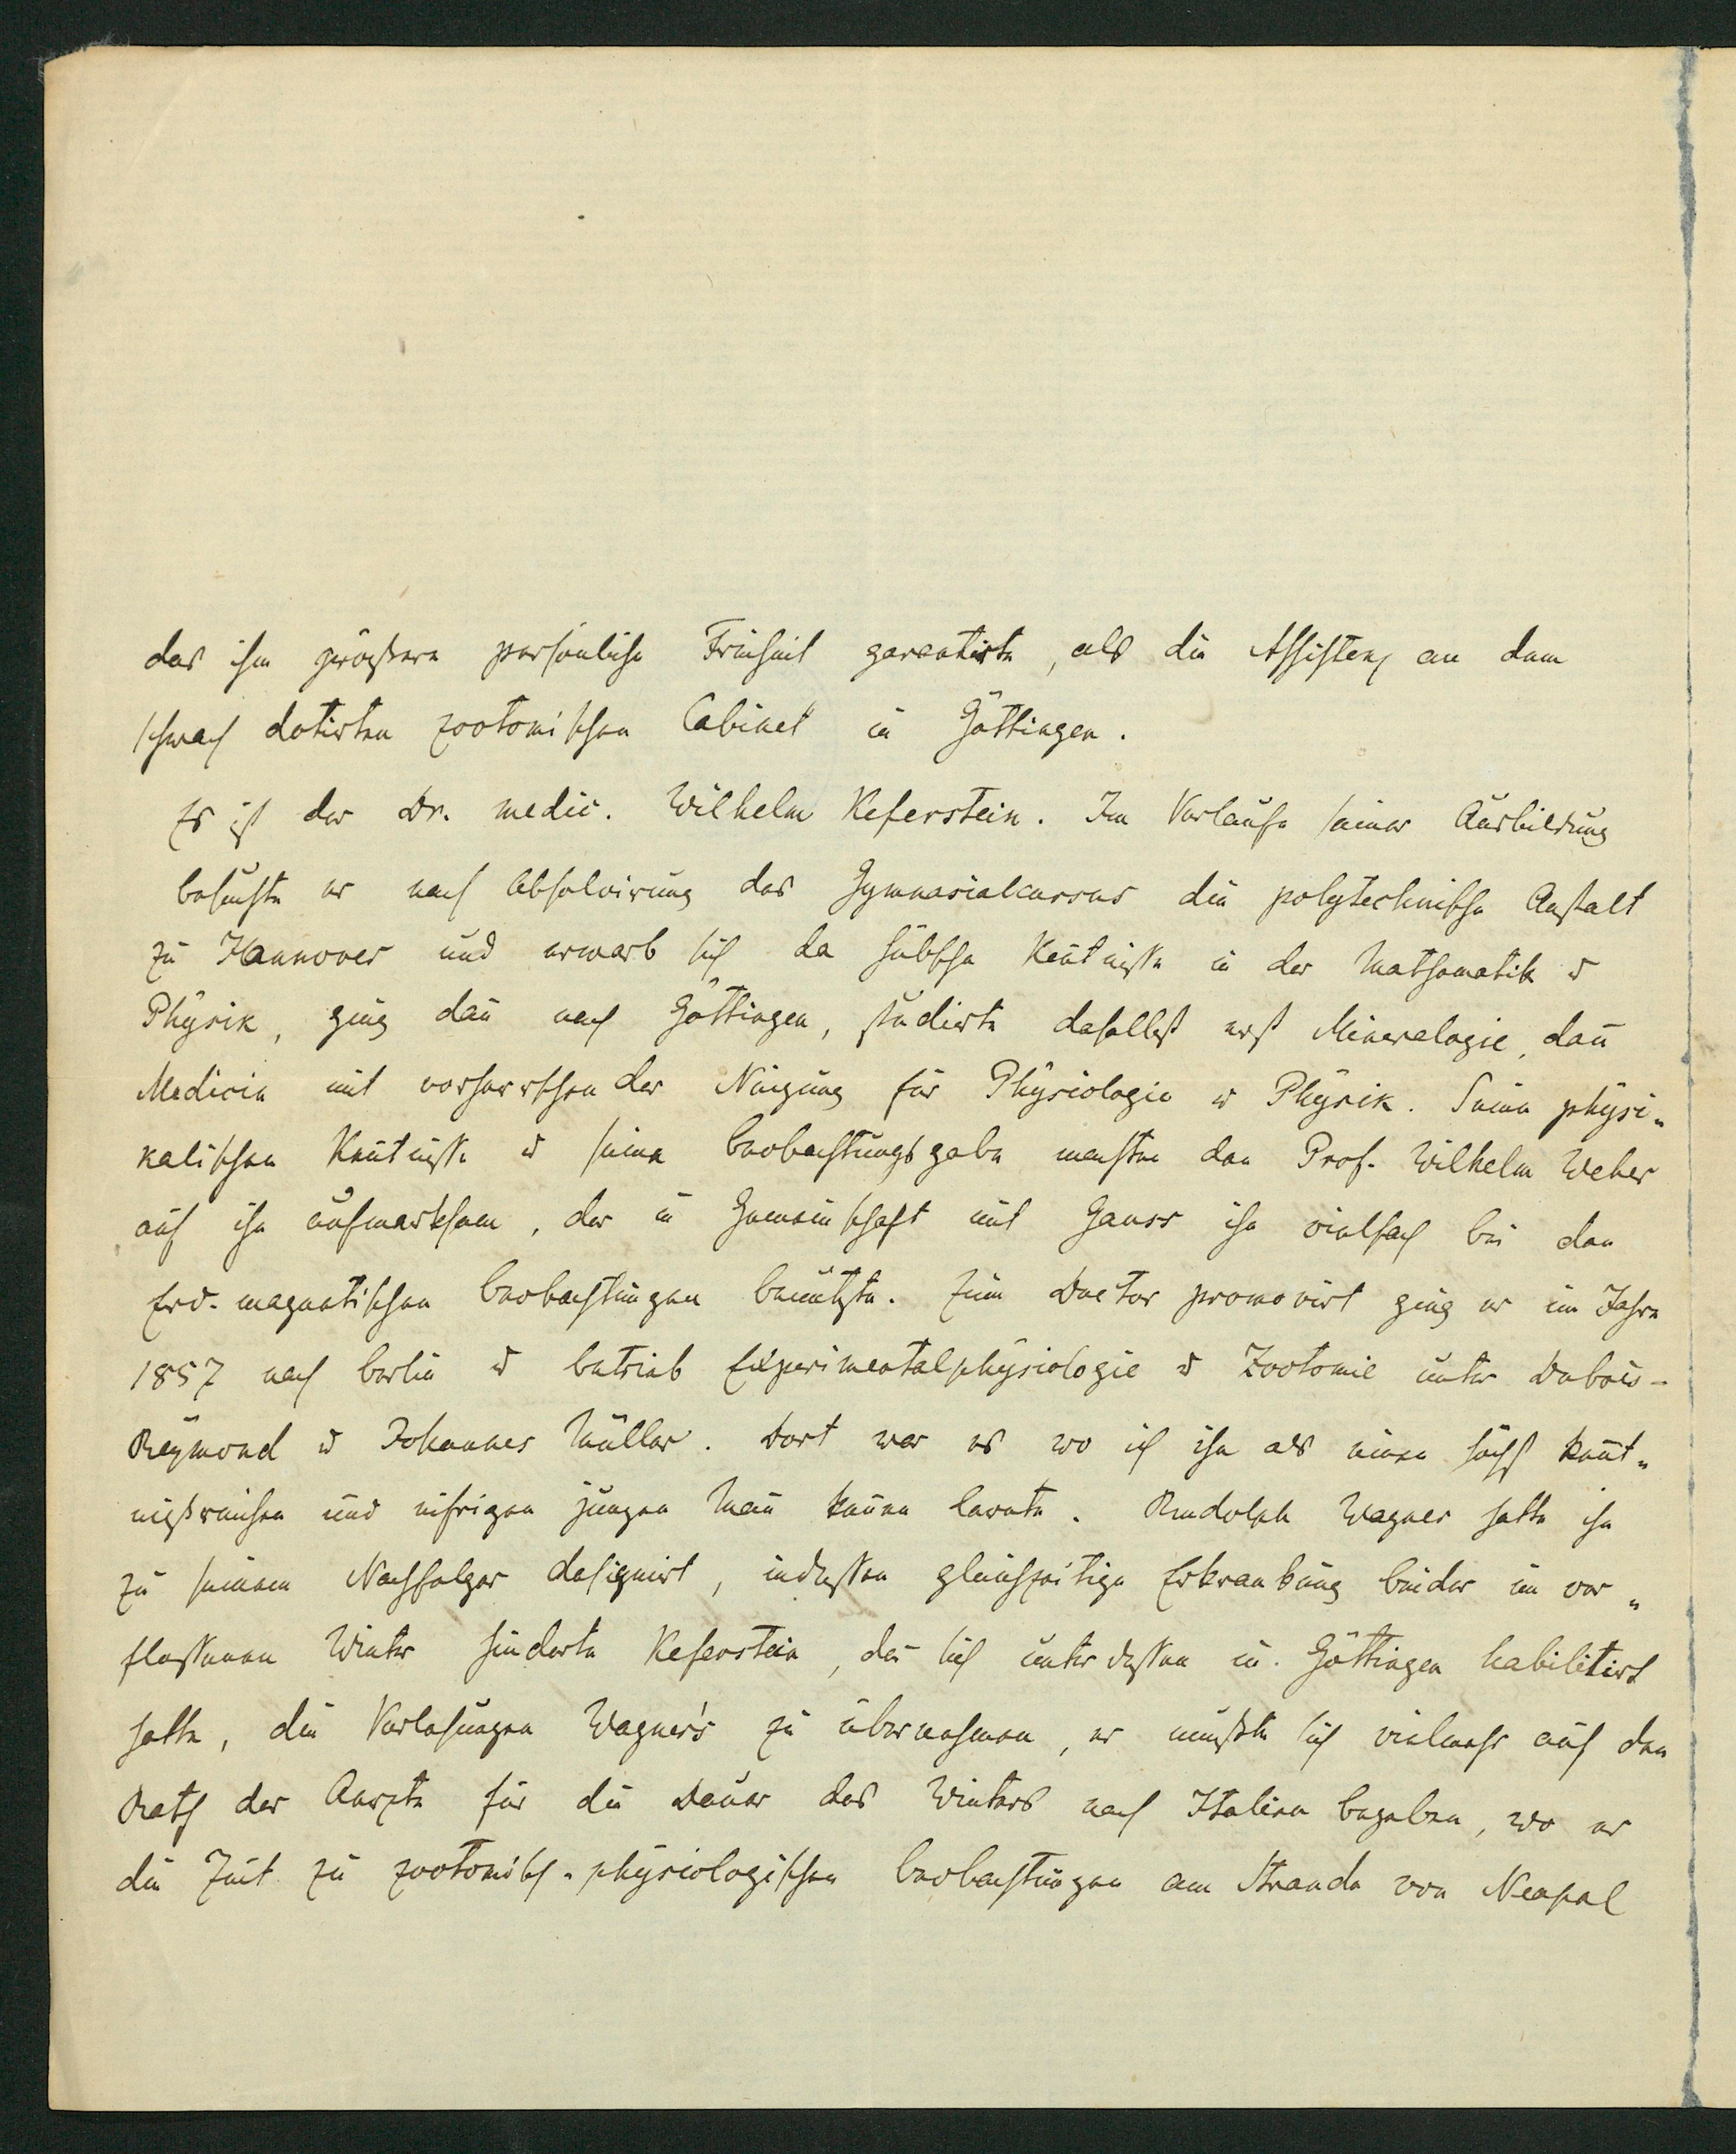 das ihm größere persönliche Freiheit garantirte, als die Assistenz an dem
schwach dotirten zootomischen Cabinet in Göttingen.
Es ist der Dr. medic. Wilhelm Keferstein. Im Verlaufe seiner Ausbildung
besuchte er nach Absolvirung des Gymnasialcursus die polytechnische Anstalt
zu Hannover und erwarb sich da hübsche Kentnisse in der Mathematik u
Physik, ging dan̄ nach Göttingen, studirte daselbst erst Mineralogie, dan̄
Medicin mit vorherrschender Neigung für Physiologie u Physik. Seine physi„
kalischen Ken̄tnisse u seine Beobachtungsgabe machten den Prof. Wilhelm Weber
auf ihn aufmerksam, der in Gemeinschaft mit Gauss ihn vielfach bei den
Erd-magnetischen Beobachtungen benützte. Zum Doctor promovirt ging er im Jahre
1857 nach Berlin u betrieb Experimentalphysiologie u Zootomie unter Dubois-
Reymond u Johannes Müller. Dort war es wo ich ihn als einen höchst ken̄t„
nißreichen und eifrigen jungen Man̄ ken̄en lernte. Rudolph Wagner hatte ihn
zu seinem Nachfolger designirt, indessen gleichzeitige Erkrankung beider im ver„
flossenen Winter hinderte Keferstein, der sich unterdessen in Göttingen habilitirt
hatte, die Vorlesungen Wagner's zu übernehmen, er mußte sich vielmehr auf den
Rath der Aerzte für die Dauer des Winters nach Italien begeben, wo er
die Zeit zu zootomisch-physiologischen Beobachtungen am Strande von Neapel